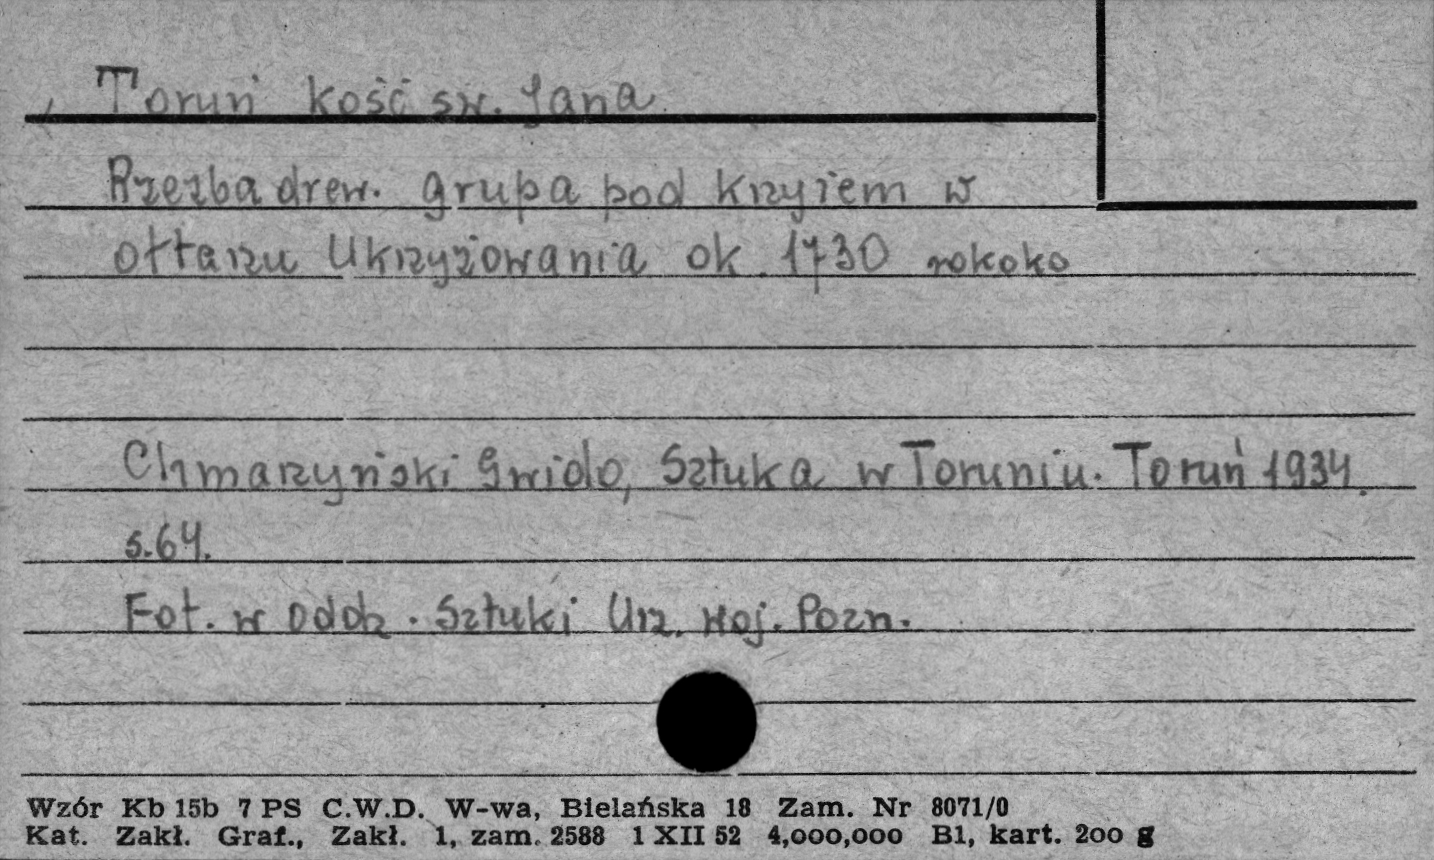 Toruń kość św. Jana
Rzeźba drew. grupa pod krzyżem w
ołtarzu Ukrzyżowania ok. 1730 rokoko
Chmarzyński Gwido, Sztuka w Toruniu. Toruń 1934.
s.64.
Fot. w oddz. Sztuki Urz. woj. Pozn.
Wzór Kb 15b 7 PS C.W.D. W-wa, Bielańska 18 Zam. Nr 8071/0
Kat. Zakł. Graf., Zakł. 1, zam. 2588 1 XII 52 4,000,000 B1, kart. 200 g